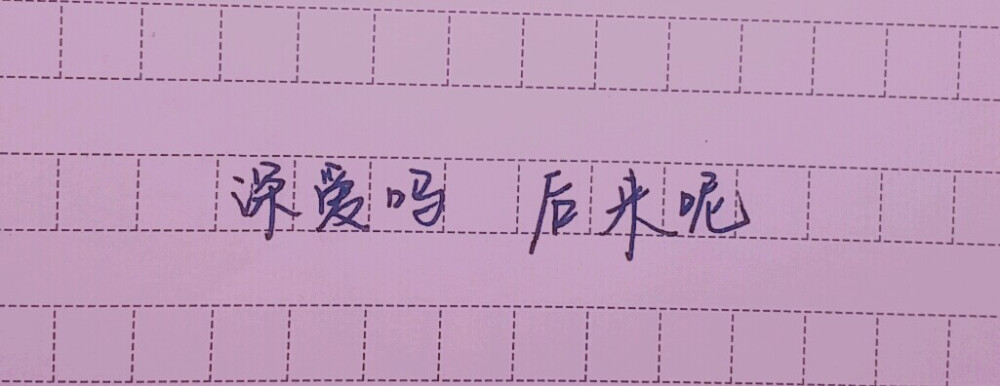 深爱吗 后来呢